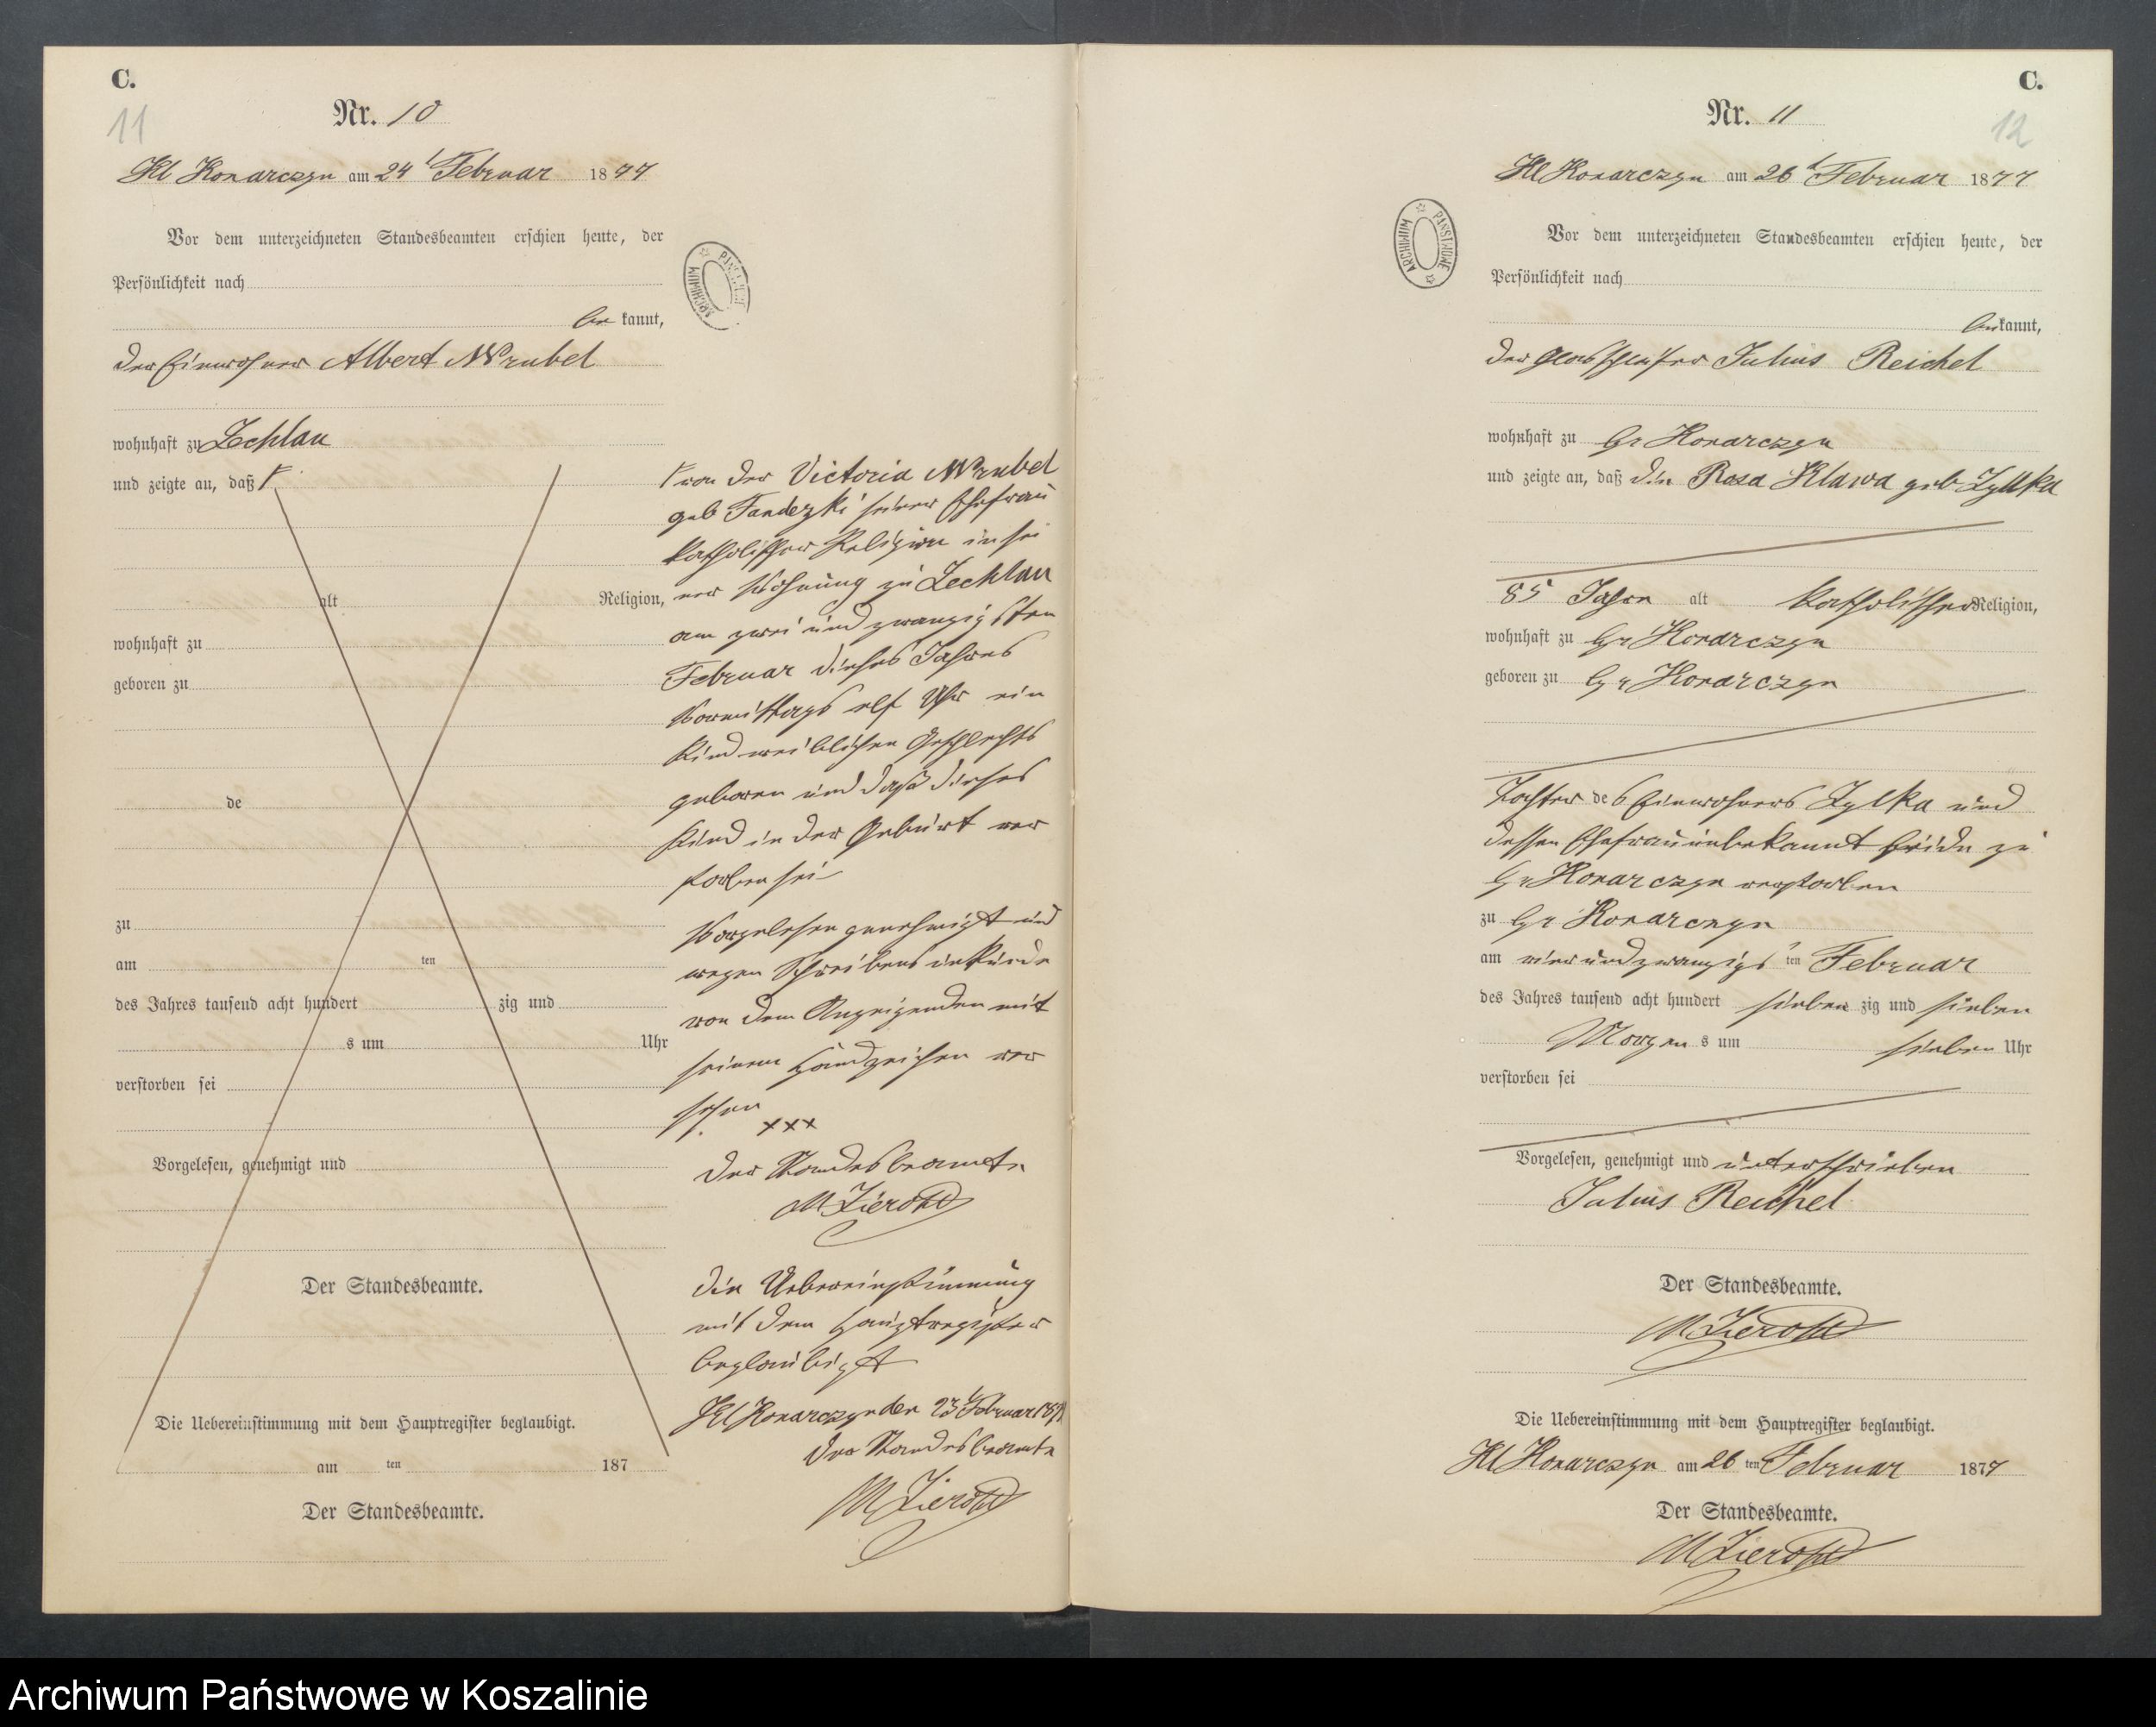 C.
11
Nr. 10
Kl Konarczyn am 24t Februar 1877
Vor dem unterzeichneten Standesbeamten erschien heute, der
Persönlichkeit nach
be kannt,
der Einwohner Albert Wrubel
wohnhaft zu Zechlau
und zeigte an, daß
alt Religion,
wohnhaft zu
geboren zu
de
zu
am ten
des Jahres tausend acht hundert zig und
s um Uhr
verstorben sei
Vorgelesen, genehmigt und
Der Standesbeamte.
Die Uebereinstimmung mit dem Hauptregister beglaubigt.
am ten 187
Der Standesbeamte.
ARCHIWUM PAŃSTWOWE
von der Victoria Wrubel
geb seiner Ehefrau
katholischer Religion in sei
ner Wohnung zu Zechlau
am zwei und zwanzigsten
Februar dieses Jahres
Vormittags elf Uhr ein
Kind weiblichen Geschlechts
geboren und daß dieses
Kind in der Geburt ver
storben sei
Vorgelesen genehmigt und
wegen Schreibens unkunde
von dem Anzeigenden mit
seinem Handzeichen ver
sehen
xxx
Der Standesbeamte
M Zierold
Die Uebereinstimmung
mit dem Hauptregister
beglaubigt
Kl Konarczyn den Februar 187
Der Standesbeamte
M Zierold
C.
12
Nr. 11
Kl Konarczyn am 26t Februar 1877
ARCHIWUM PAŃSTWOWE
Vor dem unterzeichneten Standesbeamten erschien heute, der
Persönlichkeit nach
be kannt,
der Glasschleifer Julius Reichel
wohnhaft zu Gr Konarczyn
und zeigte an, daß die Rosa Klawa geb Zylka
85 Jahre alt katholischer Religion,
wohnhaft zu Gr Konarczyn
geboren zu Gr Konarczyn
Tochter des Einwohners Zylka und
dessen Ehefrau unbekannt beide zu
Gr Konarczyn verstorben
zu Gr Konarczyn
am vierundzwanzigsten Februar
des Jahres tausend acht hundert sieben zig und sieben
Morgens um sieben Uhr
verstorben sei
Vorgelesen, genehmigt und unterschrieben
Julius Reichel
Der Standesbeamte.
M Zierold
Die Uebereinstimmung mit dem Hauptregister beglaubigt.
Kl Konarczyn am 26 ten Februar 1877
Der Standesbeamte.
M Zierold
Archiwum Państwowe w Koszalinie